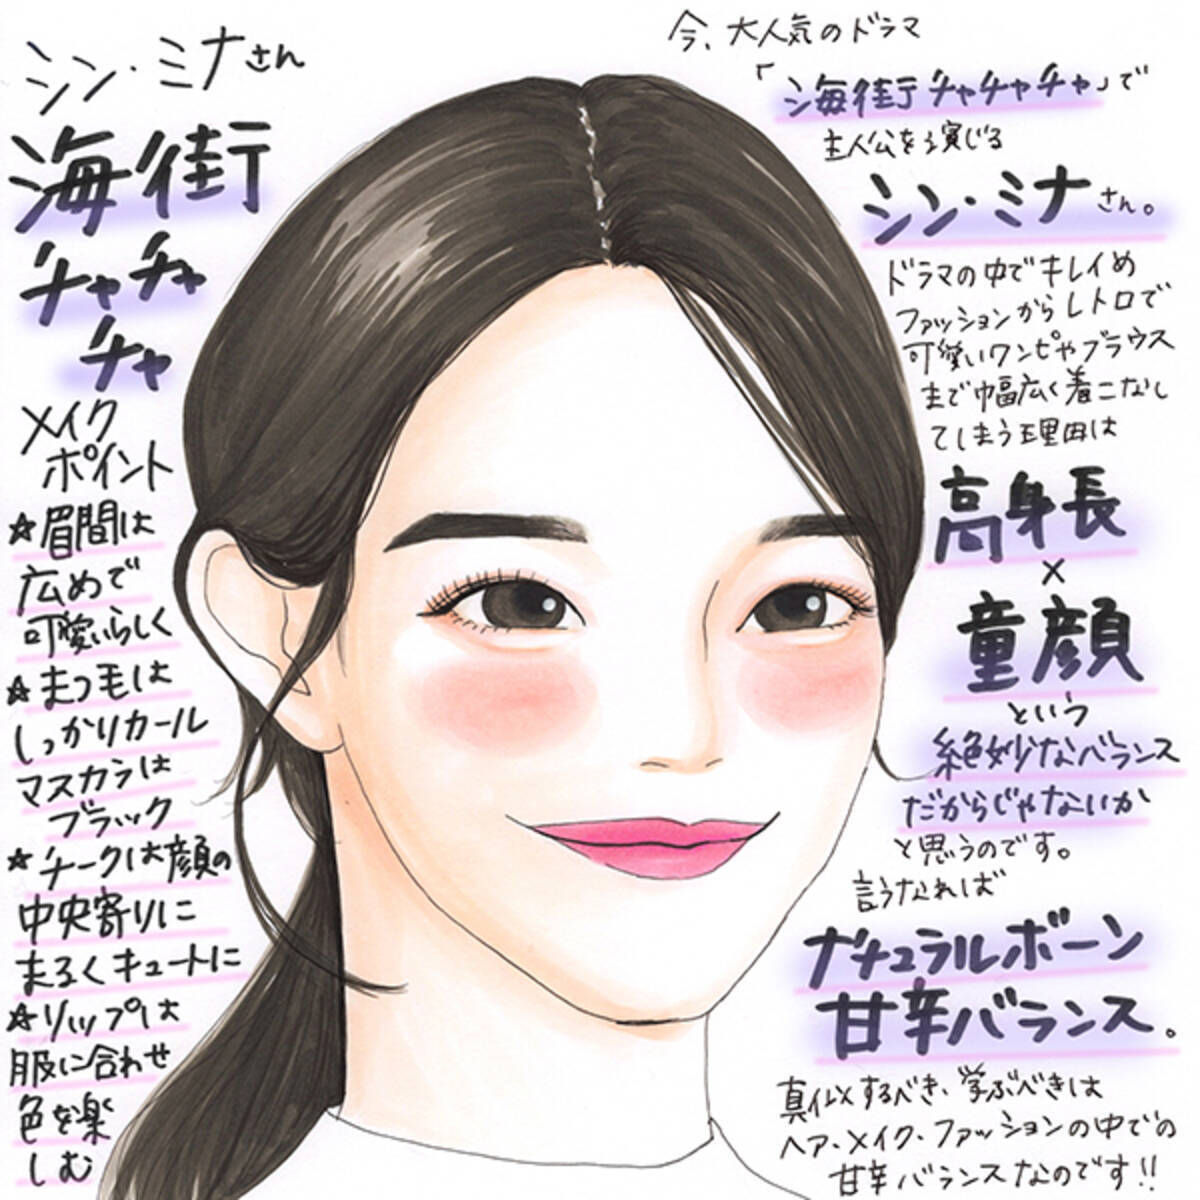 シン・ミナさん
海街
チャチャ
チャ
メイク
ポイント
☆眉間は
広めで
可愛いらしく
☆まつ毛は
しっかりカール
マスカラは
ブラック
☆チークは顔の
中央寄りに
まるくキュートに
☆リップは
服に合わせ
色を楽
しむ
今、大人気のドラマ
「海街チャチャチャ」で
主人公を演じる
シン・ミナさん。
ドラマの中でキレイめ
ファッションからレトロで
可愛いワンピやブラウス
まで幅広く着こなし
てしまう理由は
高身長
×
童顔
という
絶妙なバランス
だからじゃないか
と思うのです。
言うなれば
ナチュラルボーン
甘辛バランス。
真似するべき、学ぶべきは
ヘア・メイク・ファッションの中での
甘辛バランスなのです!!